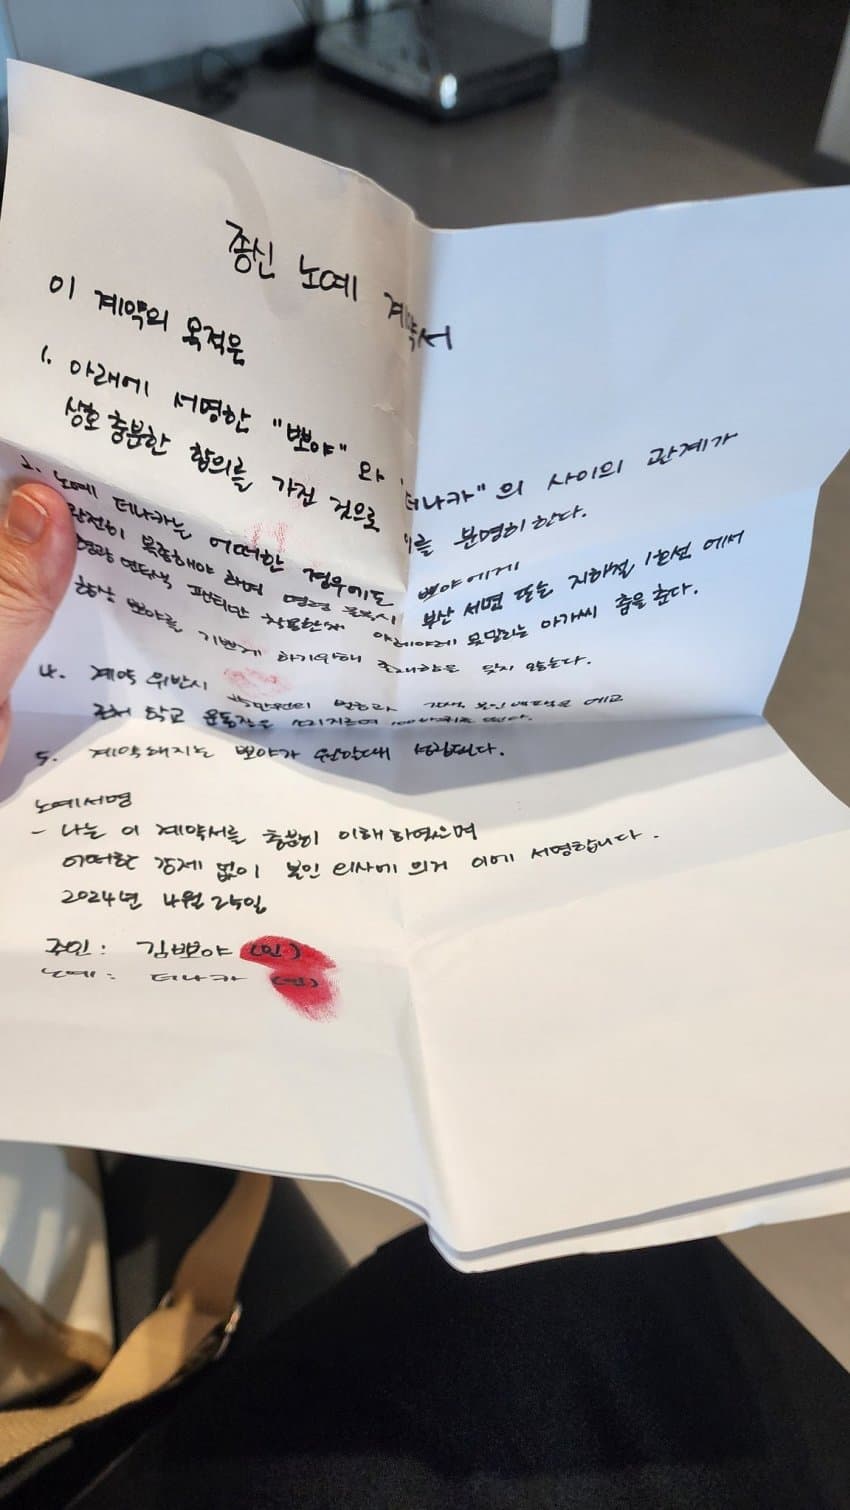 종신 노예 계약서
이 계약의 목적은
1. 아래에 서명한 "뽀야" 와 "터나카" 의 사이의 관계가
상호 충분한 합의를 가진 것으로 이를 분명히한다.
2. 노예 터나카는 어떠한 경우에도 뽀야에게
완전히 복종해야 하며 명령 불복시 부산 서면 또는 지하철 1호선 에서
형광 연두색 팬티만 착용한채 아레아레 못말리는 아가씨 춤을 춘다.
항상 뽀야를 기쁘게 하기위해 존재함을 잊지 않는다.
4. 계약 위반시
학교 운동장을 소리지르며
5. 계약해지는 뽀야가 원할때 성립된다.
노예서명
- 나는 이 계약서를 충분히 이해하였으며
어떠한 강제 없이 본인 의사에 의거 이에 서명합니다.
2024년 4월 24일
주인: 김뽀야 (인)
노예: 터나카 (인)